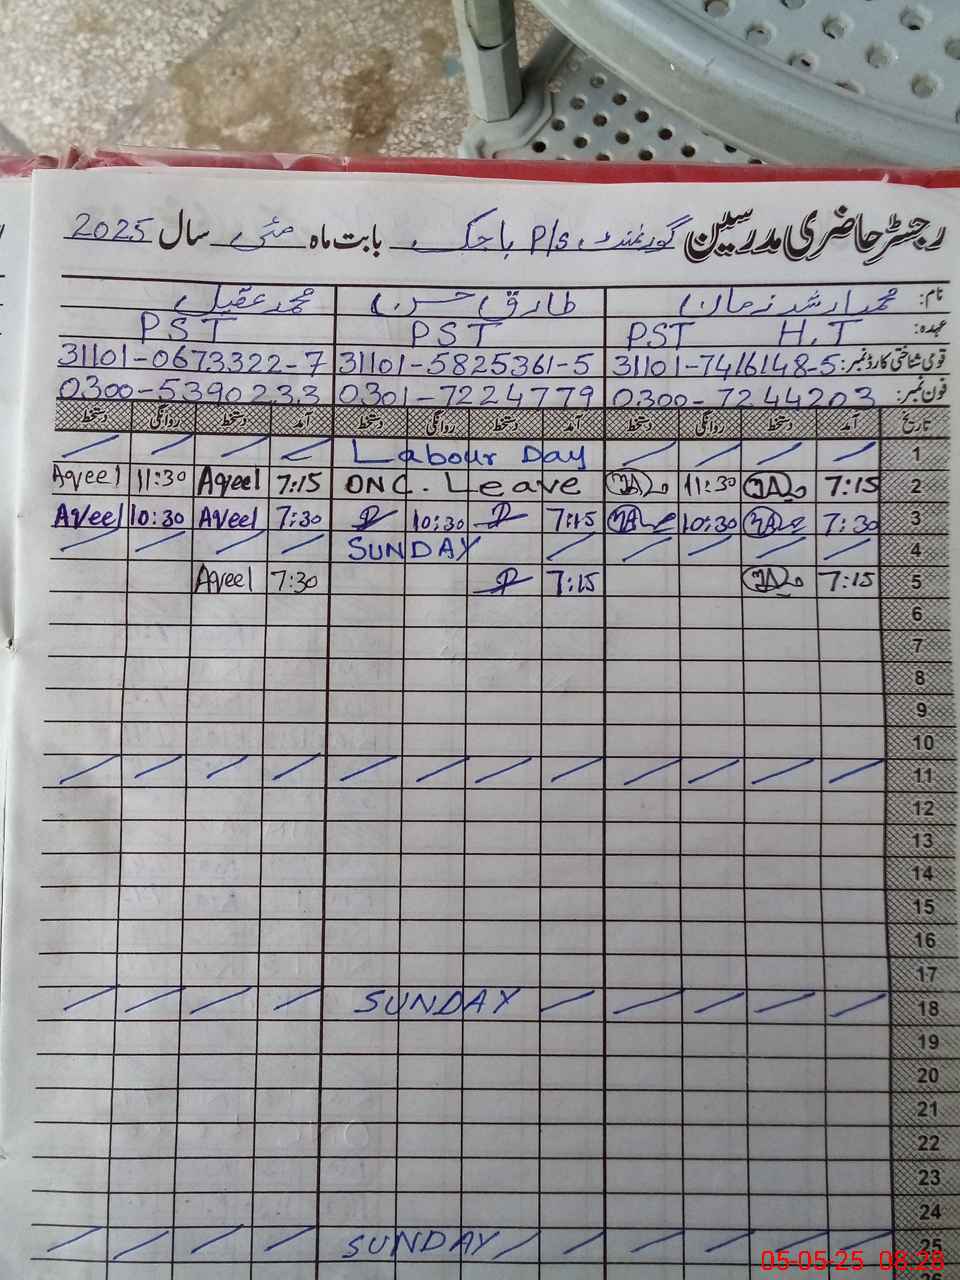 رجسٹر حاضری مدرسین گورنمنٹ P/S باجک بابت ماہ مئی سال 2025
نام: محمد ارشد زمان طارق حسن محمد عقیل
عہدہ: H.T PST PST PST
قومی شناختی کارڈ نمبر: 31101-7416148-5 31101-5825361-5 31101-0673322-7
فون نمبر: 0300-7244203 0301-7224779 0300-5390233
تاریخ آمد دستخط روانگی دستخط آمد دستخط روانگی دستخط آمد دستخط روانگی دستخط
1 Labour Day
2 7:15 11:30 ONC. Leave 7:15 Aqeel 11:30 Aqeel
3 7:30 10:30 7:15 10:30 7:30 Aqeel 10:30 Aqeel
4 SUNDAY
5 7:15 7:15 7:30 Aqeel
6
7
8
9
10
11
12
13
14
15
16
17
18 SUNDAY
19
20
21
22
23
24
25 SUNDAY
05-05-25 08:28